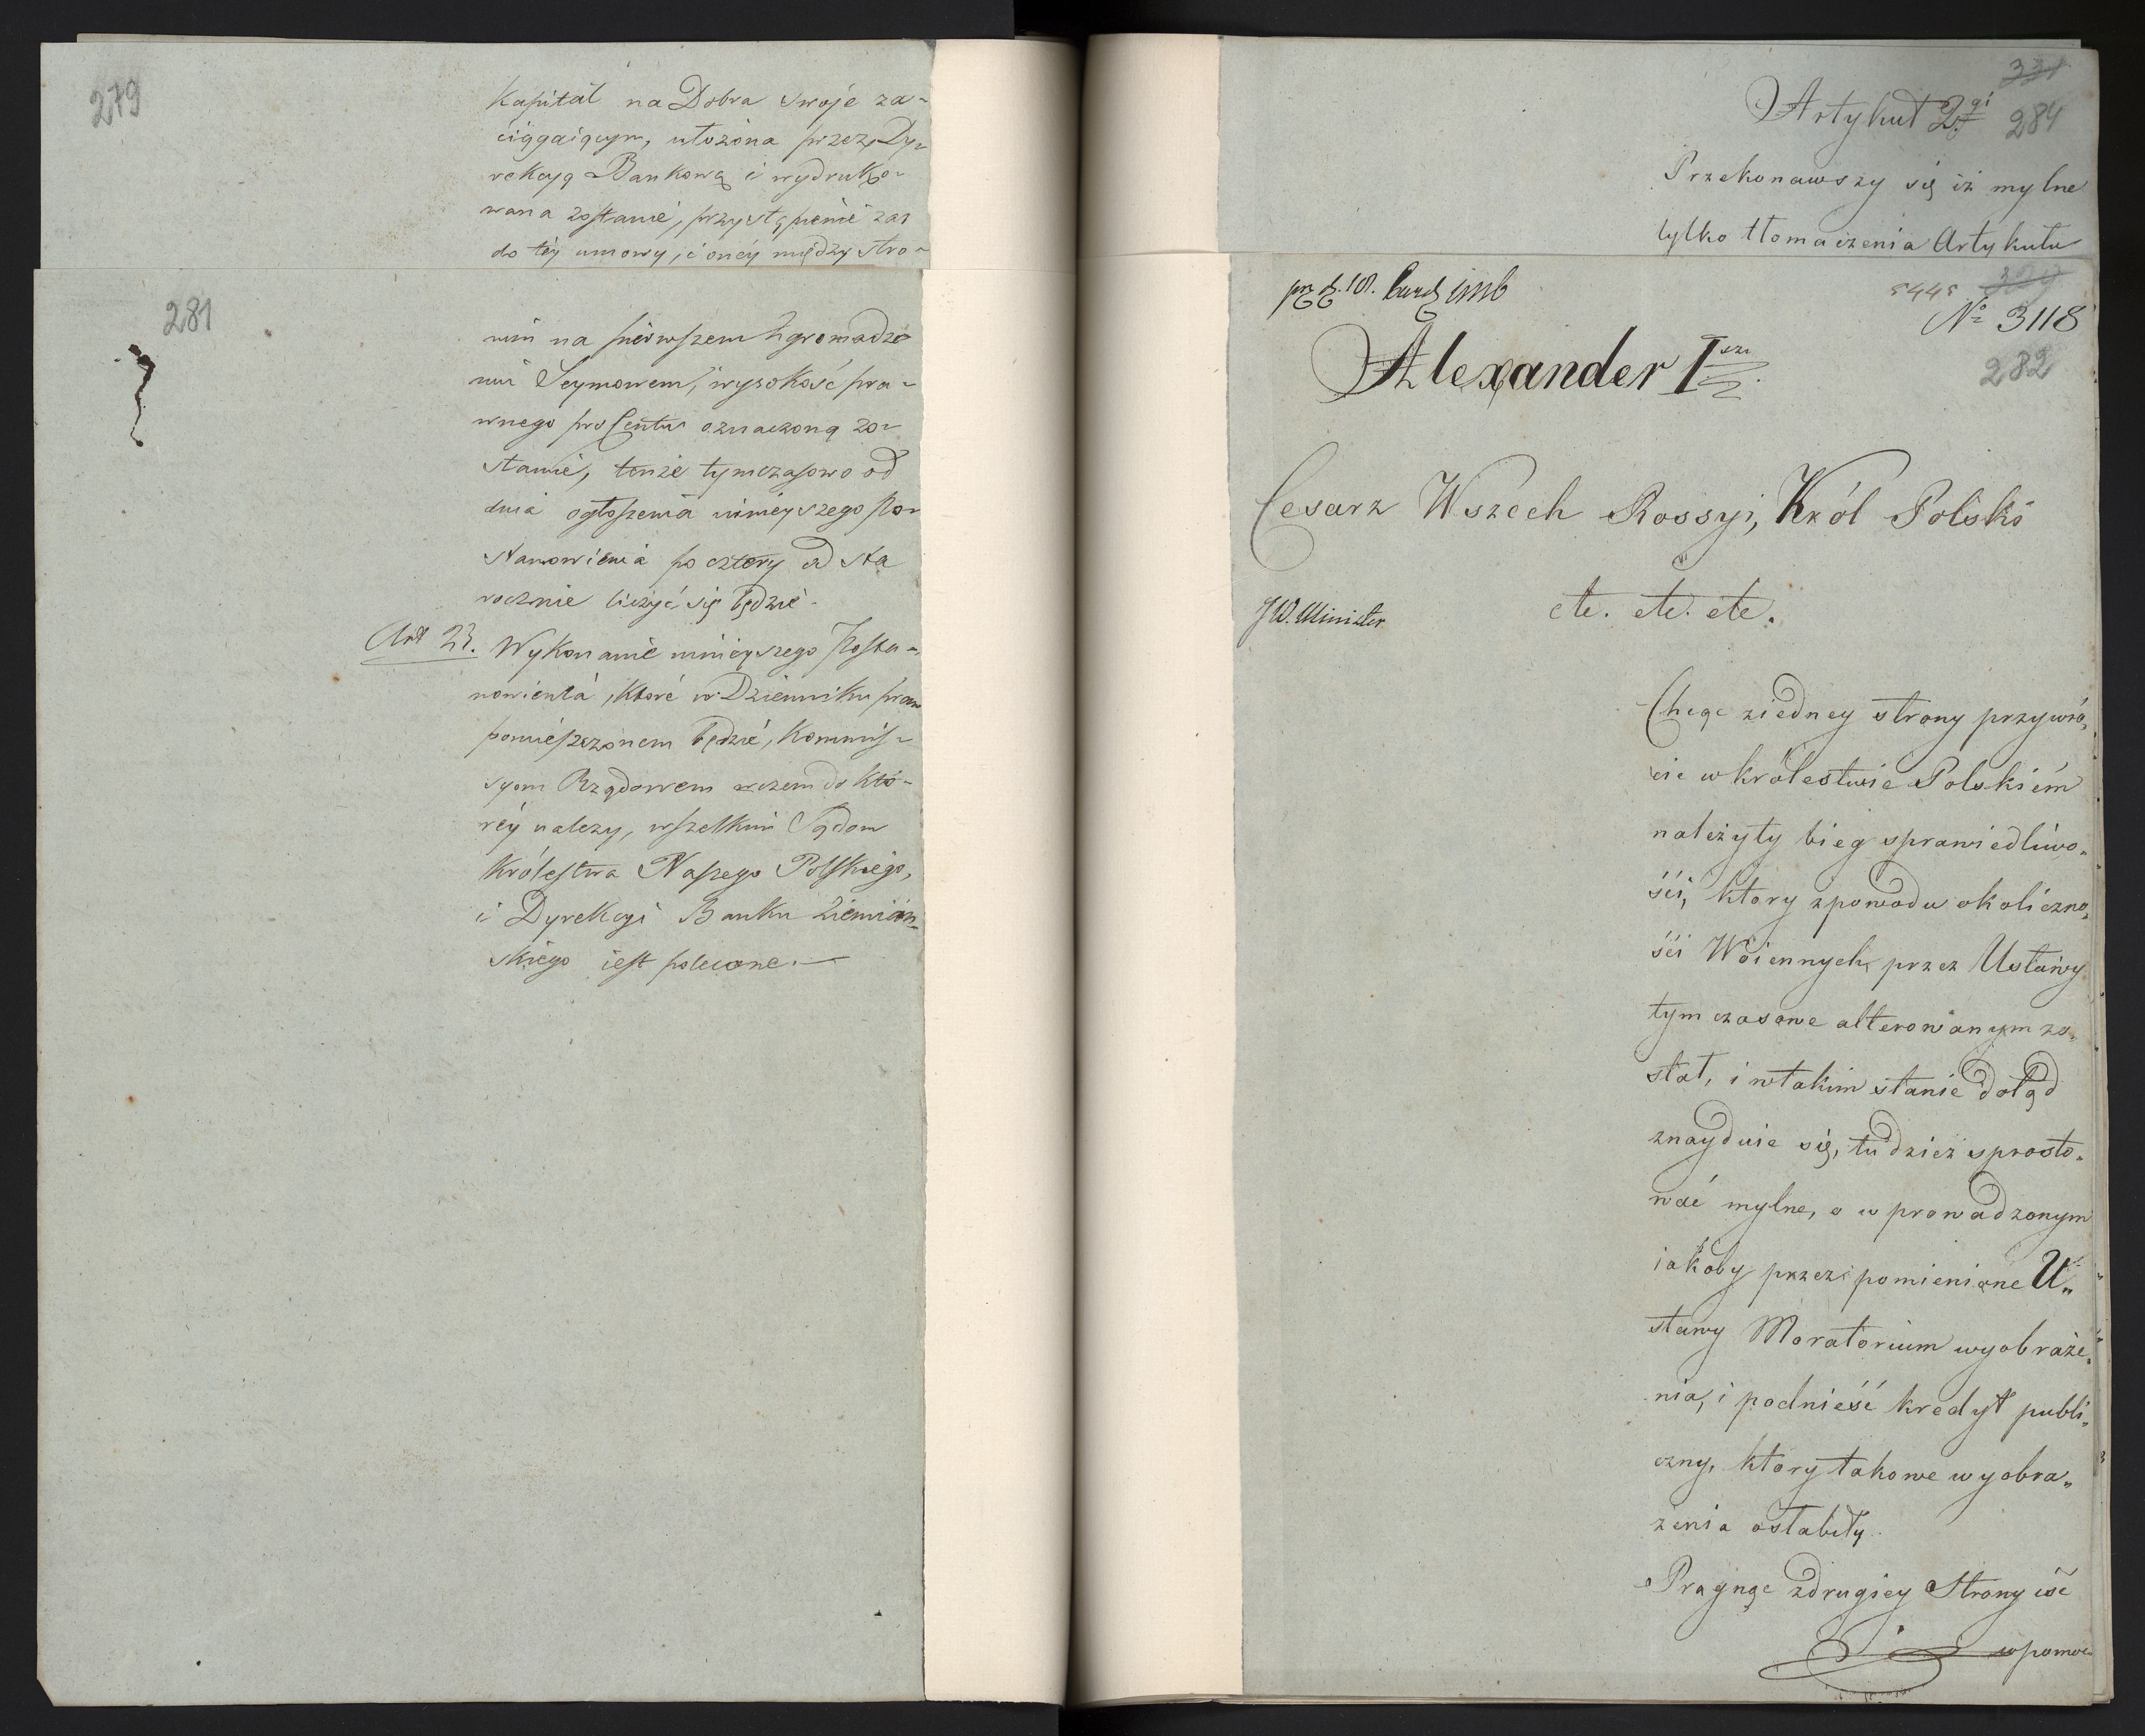 279
Kapitał na Dobra swoje za-
ciągaiącym, ułożona przez Dy-
rekcyą Bankową i wydruko-
wana zostanie, przystąpienie zas
do téy umowy, i onéy między stro-
281
nim na pierwszem Zgromadze
niu Seymowem, wysokość pra-
wnego procentu oznaczoną zo-
stanie, tenże tymczasowo od
dnia ogłoszenia ninieyszego Po-
stanowienia po cztery od sta
rocznie liczyć się będzie.
Art 23. Wykonanie ninieyszego Posta-
nowienia, które w Dzienniku praw
pomieszczonem będzie, Kommis-
syom Rządowem w czem do któ-
réy należy, wszelkim Sądom
Królestwa Naszego Polskiego,
i Dyrekcyi Banku Ziemiań-
skiego iest polecone.
331
Artykuł 2gi 284
Przekonawszy się iż mylne
tylko tłomaczenia Artykułu
5445
No 3118
Alexander Iszy
282
Cesarz Wszech Rossyi, Król Polski
etc. etc. etc.
JW. Minister
Chcąc ziedney strony przywró,
cić w królestwie Polskiém
należyty bieg sprawiedliwo,
ści, ktory zpowodu okoliczno,
ści Woiennych, przez Ustawy
tymczasowe alterowanym zo,
stał, i wtakim stanie dotąd
znayduie się, tudzież sprosto,
wać mylne, o wprowadzonym
iakoby przez pomienione U,,
stawy Moratorium wyobraże,
nia, i podnieść kredyt publi,
czny, ktory takowe wyobra,,
żenia osłabiły.
Pragnąc zdrugiey Strony iść
wpomoc